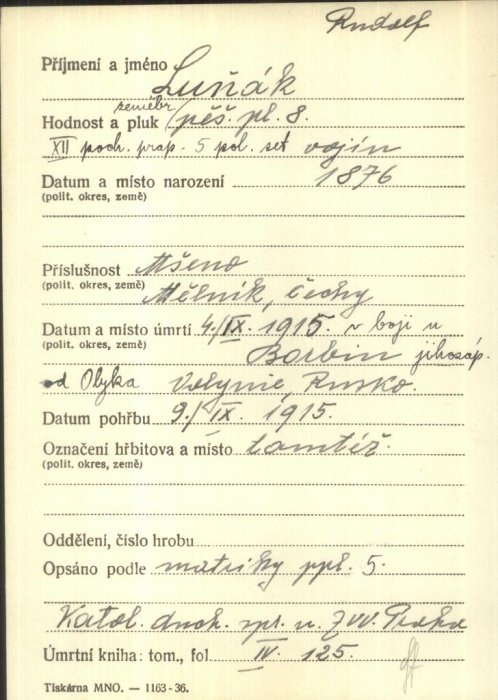 Rudolf
Příjmení a jméno Luňák
zeměbr.
Hodnost a pluk pěš. pl. 8.
XII poch. prap. 5 pol. set vojín
Datum a místo narození 1876
(polit. okres, země)
Příslušnost Mšeno
(polit. okres, země) Mělník, Čechy
Datum a místo úmrtí 4./IX. 1915. v boji u
(polit. okres, země) Borbin jihozáp.
od Olyka Volynie, Rusko.
Datum pohřbu 9./IX. 1915.
Označení hřbitova a místo tamtéž.
(polit. okres, země)
Oddělení, číslo hrobu
Opsáno podle matriky ppl. 5.
Katol. duch. spr. u ZVV. Praha
Úmrtní kniha: tom., fol. IV. 125.
Tiskárna MNO. — 1163-36.